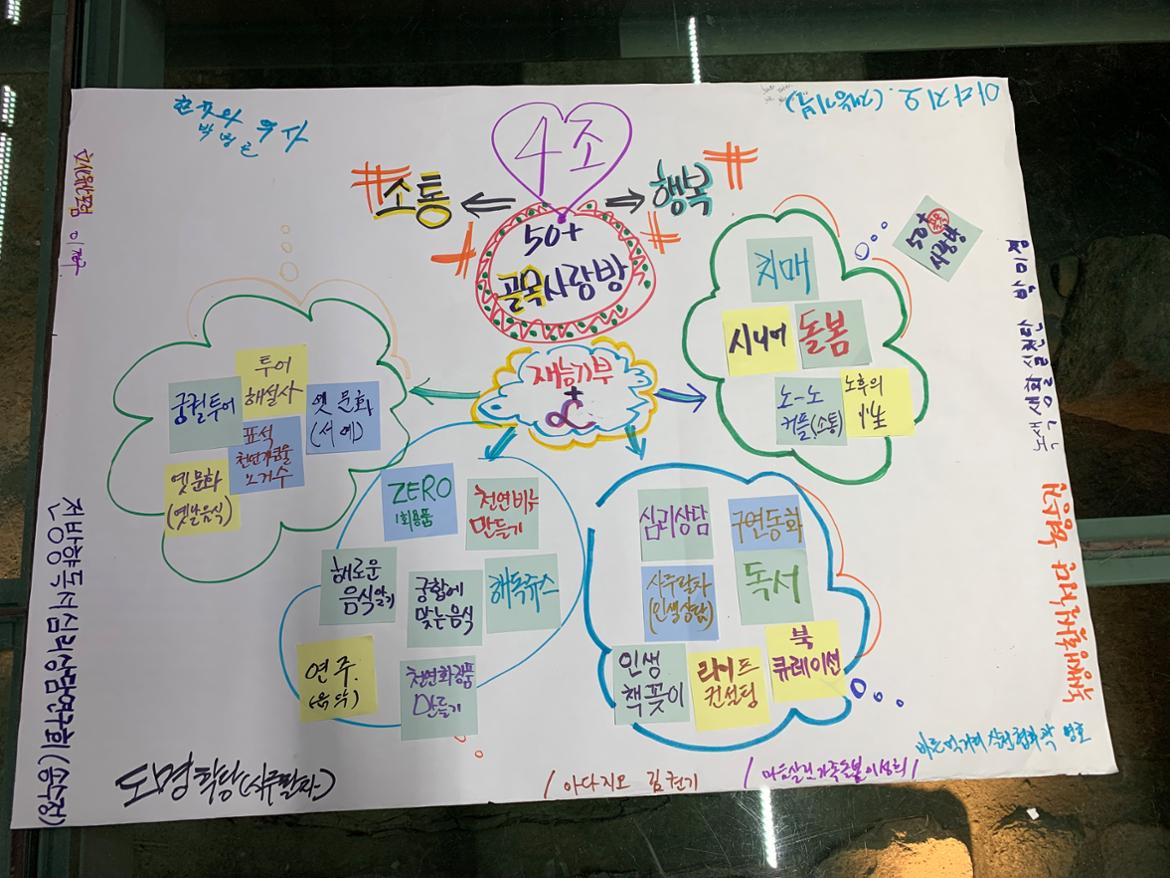 4조
#소통
행복#
50+
골목사랑방
재능기부
+
α
50+
골목
사랑방
치매
시니어
돌봄
노-노
커플(소통)
노후의
性
투어
해설사
궁궐투어
옛 문화
(서예)
표석
천연기념물
노거수
옛문화
(옛날음식)
ZERO
1회용품
천연비누
만들기
해로운
음식알기
궁합에
맞는음식
해독쥬스
연주.
(음악)
천연화장품
만들기
심리상담
구연동화
사주팔자
(인생상담)
독서
인생
책꽂이
라이프
컨설팅
북
큐레이션
전방향독서심리상담연구회(송수정)
도명학당(사주팔자)
/ 아다지오 김현기
바른먹거리실천협회